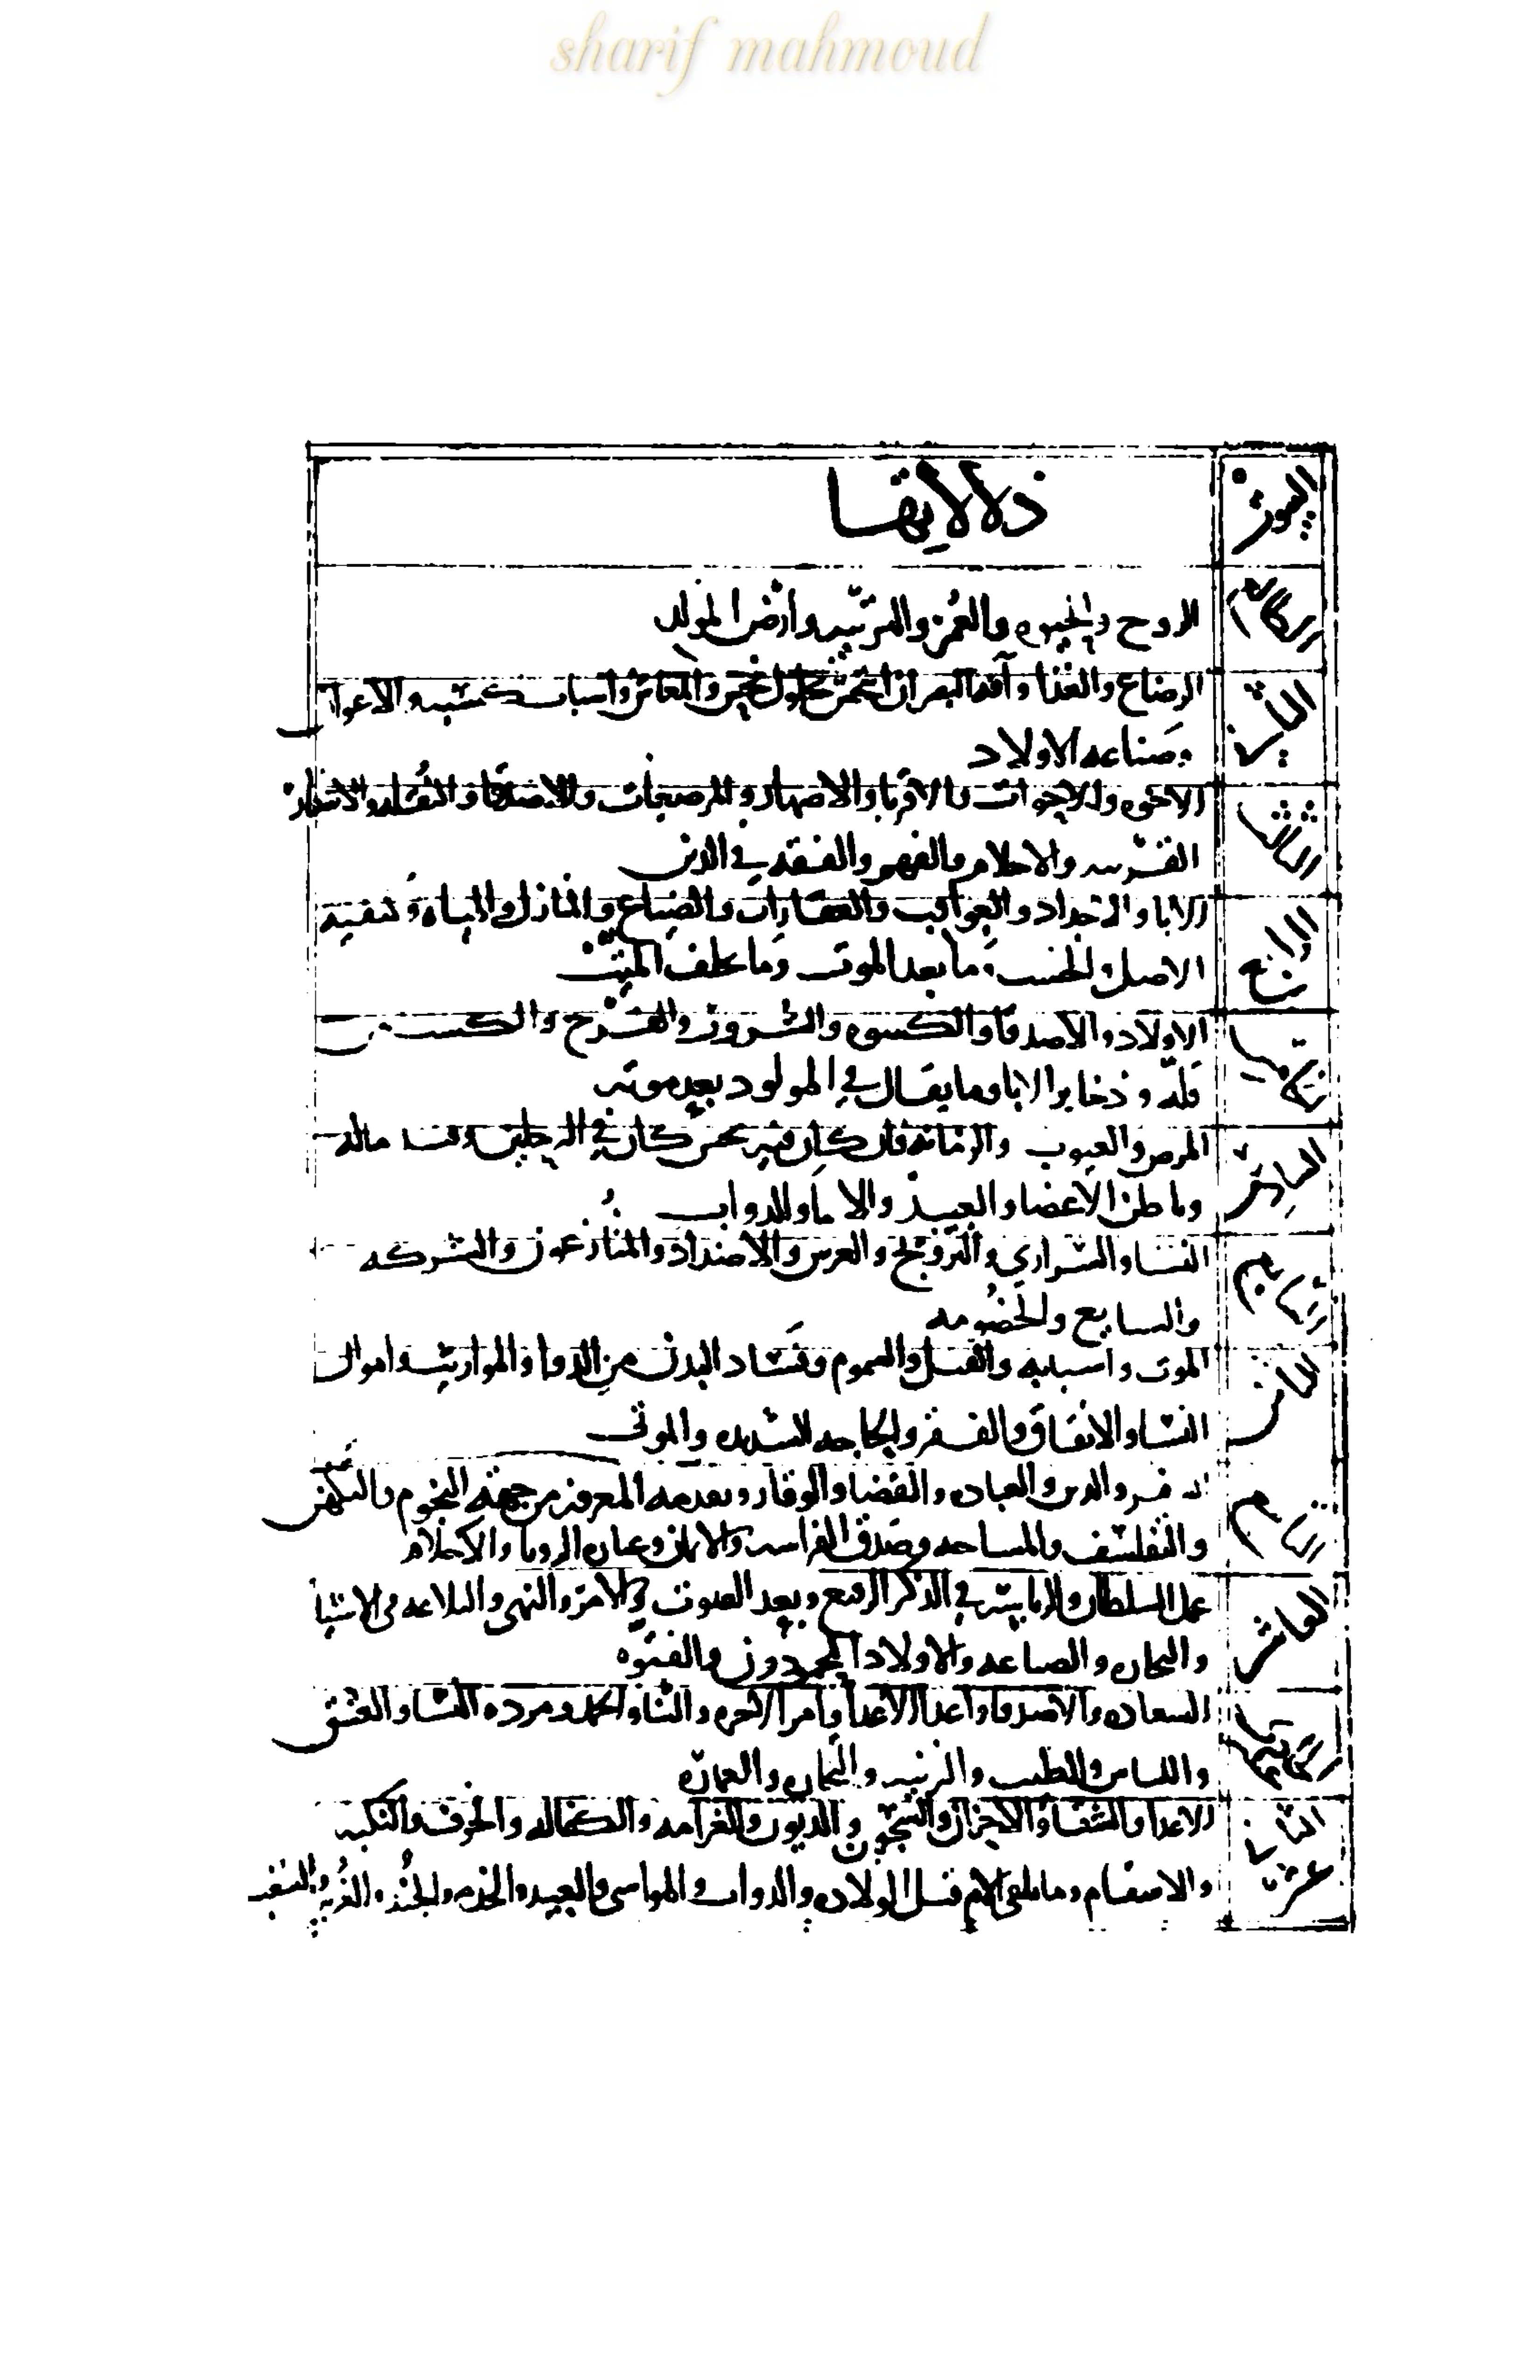 sharif mahmoud
البيوت دلالاتها
الطالع الروح والحيوه والعمر والتربيه وارض المولد
الثاني الرضاع والغذا وآفه البصر ان والمعاش واسباب كسبه والاعوان
وصناعه الاولاد
الثالث الاخوه والاخوات والاقربا والاصهار والاصدقا والنقله والاسفار
القريبه والاحلام والفهم والفقه في الدين
الرابع الابا والاجداد والعواقب والعقارات والضياع والمنازل والمياه
الاصل والجنس وما بعد الموت وما يخلف الميت
الخامس الاولاد والاصدقا والكسوه والسرور والفرح والكسب من
قله وذخاير الابا وما يقال في المولود بعد موته
السادس المرض والعيوب والزمانه فان كان فيه نحس كان في الرجلين ماله
وباطن الاعضا والعبيد والاما والدواب
السابع النسا والسراري والتزويج والعرس والاضداد والمنازعون والشركه
والخصومه
الثامن الموت واسبابه والقتل والسموم وفساد البدن من الدوا والمواريث واموال
النسا والانفاق والفقر والحاجه الشديده والموتى
التاسع السفر والدين والعباده والقضا والوقار وتقدمه المعرفه من جهه النجوم والتكهن
والتفلسف والمساحه وصدق الفراسه والايمان وعباره الرويا والاحلام
العاشر عمل السلطان في الذكر الرفيع وبعد الصوت في الامر والنهي في الاشيا
والتجاره والصناعه والاولاد
السعاده والاصدقا واعدا الاعدا وامر الاخره والثنا والحمد النسا والعشق
واللباس والطيب والزينه والتجاره والعماره
الثاني عشر الاعدا والشقا والاحزان والسجون والديون والغرامه والكفاله والخوف والنكبه
والاسقام وما يلقى الام قبل الولاده والدواب والمواسي والعبيد والخدم والجند